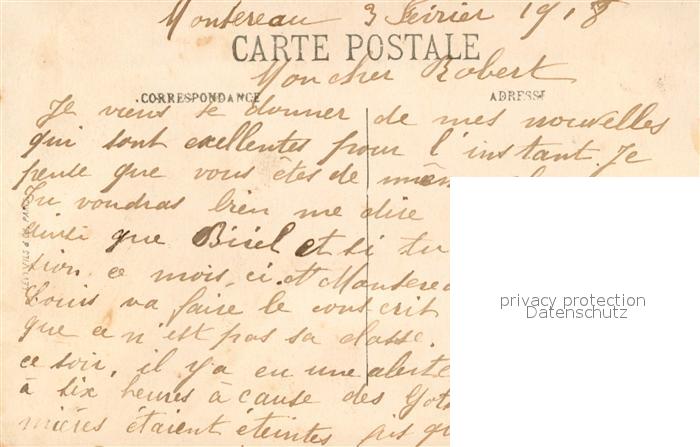 Montereau 3 Février 1918
CARTE POSTALE
Mon cher Robert
CORRESPONDANCE ADRESSE
Je viens te donner de mes nouvelles
qui sont exellentes pour l'instant. Je
pense que vous êtes de mêm
Tu voudras bien me dire
ainsi que Bisel et si tu
sion ce mois ci. A Montereau
Louis va faire le conscrit
que ce n'est pas sa classe.
ce soir, il y a eu une alerte
à six heures à cause des Got
mières étaient éteintes
privacy protection
Datenschutz